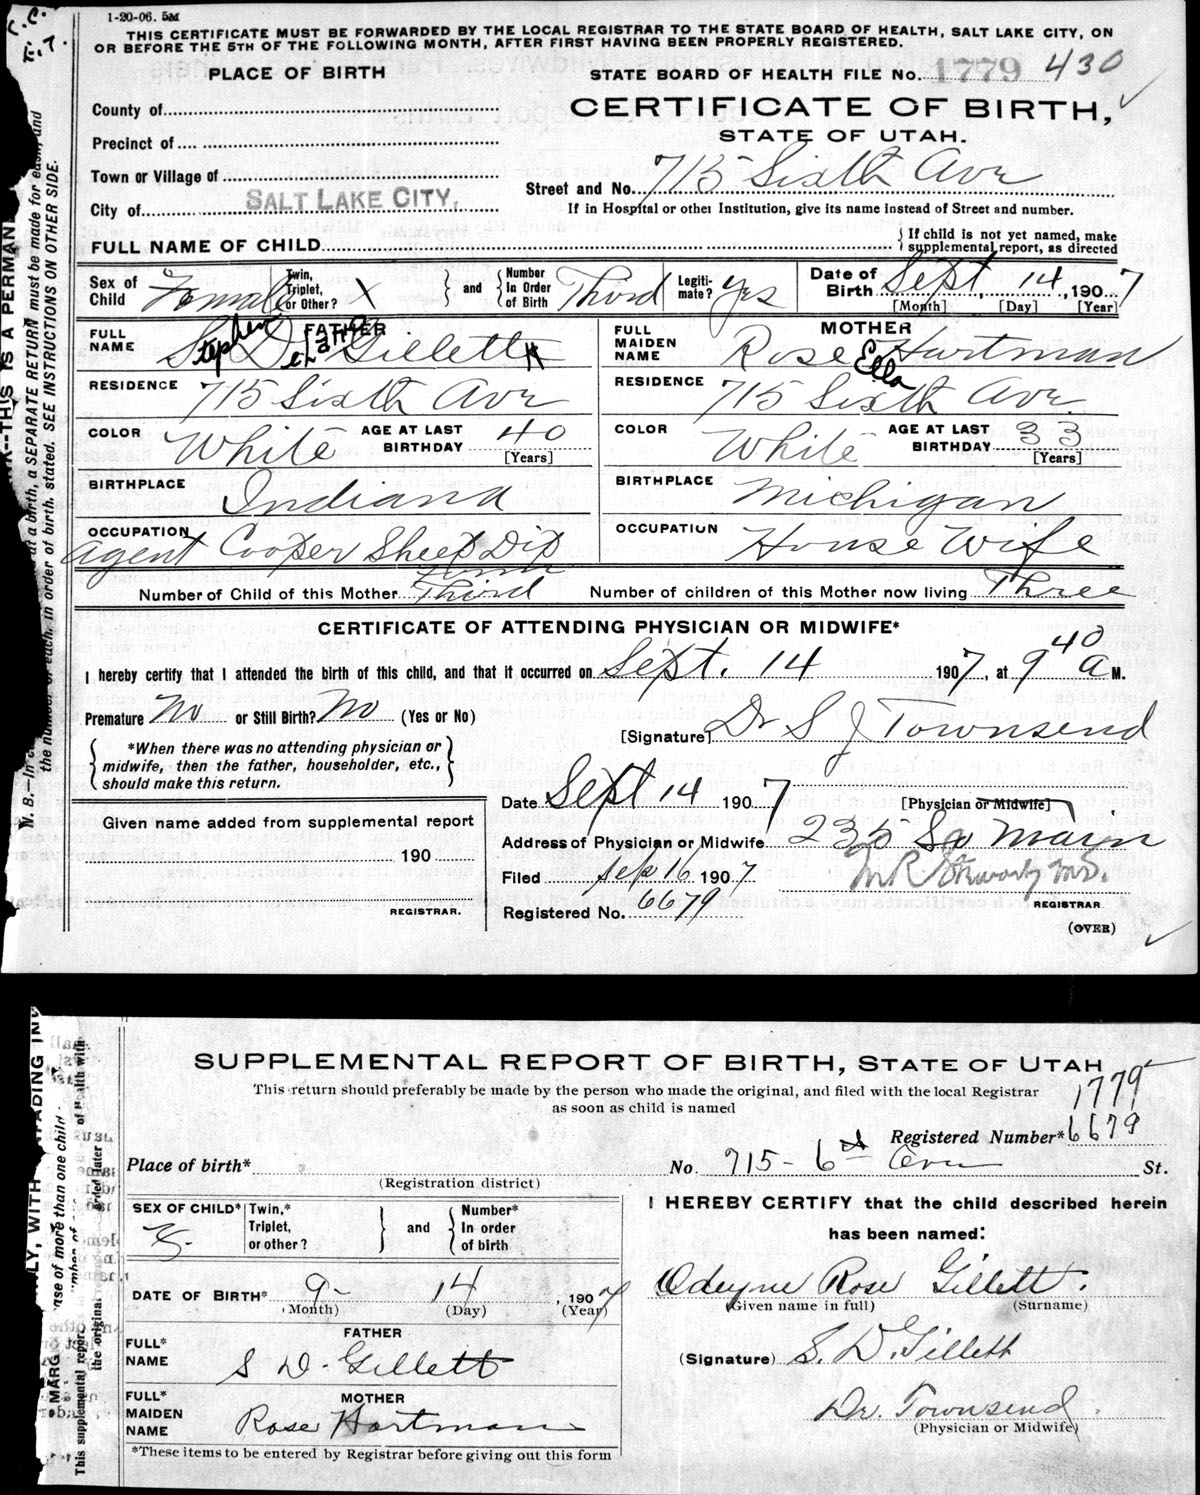 C. C.
E. T.
1-20-06. 5M
THIS CERTIFICATE MUST BE FORWARDED BY THE LOCAL REGISTRAR TO THE STATE BOARD OF HEALTH, SALT LAKE CITY, ON
OR BEFORE THE 5TH OF THE FOLLOWING MONTH, AFTER FIRST HAVING BEEN PROPERLY REGISTERED.
PLACE OF BIRTH
STATE BOARD OF HEALTH FILE No. 1779 430
County of
CERTIFICATE OF BIRTH,
Precinct of
STATE OF UTAH.
Town or Village of
Street and No. 715 Sixth Ave
City of SALT LAKE CITY,
If in Hospital or other Institution, give its name instead of Street and number.
FULL NAME OF CHILD
If child is not yet named, make
supplemental report, as directed
Sex of Child Female
Twin, Triplet, or Other? X
and
Number In Order of Birth Third
Legiti-mate? Yes
Date of Birth Sept 14, 1907
[Month] [Day] [Year]
FATHER
FULL NAME Stephen D Gillett
MOTHER
FULL MAIDEN NAME Rose Ella Hartman
RESIDENCE 715 Sixth Ave
RESIDENCE 715 Sixth Ave.
COLOR White AGE AT LAST BIRTHDAY 40
[Years]
COLOR White AGE AT LAST BIRTHDAY 33
[Years]
BIRTHPLACE Indiana
BIRTHPLACE Michigan
OCCUPATION Agent Cooper Sheep Dip
OCCUPATION House Wife
Number of Child of this Mother Third
Number of children of this Mother now living Three
CERTIFICATE OF ATTENDING PHYSICIAN OR MIDWIFE*
I hereby certify that I attended the birth of this child, and that it occurred on Sept. 14 1907, at 9 40 a M.
Premature No or Still Birth? No (Yes or No)
[Signature] Dr S J Townsend
*When there was no attending physician or
midwife, then the father, householder, etc.,
should make this return.
Date Sept 14 1907
[Physician or Midwife]
Given name added from supplemental report
Address of Physician or Midwife 235 So Main
190
Filed Sep 16 1907
REGISTRAR.
REGISTRAR
Registered No. 6679
(OVER)
N. B.—In
at a birth, a SEPARATE RETURN must be made for each, and
the number of each, in order of birth, stated. SEE INSTRUCTIONS ON OTHER SIDE.
THIS IS A PERMAN
SUPPLEMENTAL REPORT OF BIRTH, STATE OF UTAH
This return should preferably be made by the person who made the original, and filed with the local Registrar
as soon as child is named
1779
Registered Number* 6679
Place of birth*
No. 715 - 6th Ave St.
(Registration district)
SEX OF CHILD* F.
Twin,* Triplet, or other?
and
Number* In order of birth
I HEREBY CERTIFY that the child described herein
has been named:
DATE OF BIRTH* 9- 14, 1907
(Month) (Day) (Year)
Odeyne Rose Gillett.
(Given name in full) (Surname)
FATHER
FULL* NAME S D. Gillett
(Signature) S. D. Gillett
MOTHER
FULL* MAIDEN NAME Rose Hartman
Dr. Townsend.
(Physician or Midwife)
*These items to be entered by Registrar before giving out this form
WITH
MARG
ase of more than one child
This supplemental repor
the original